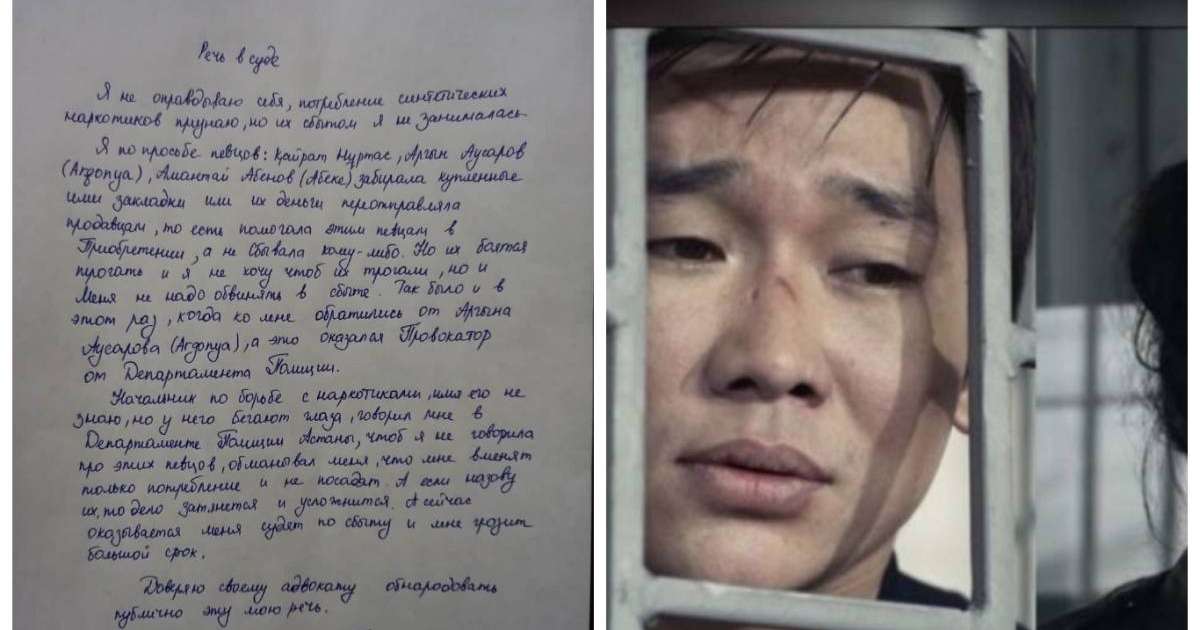 Речь в суде
Я не оправдываю себя, потребление синтетических
наркотиков признаю, но их сбытом я не занималась
Я по просьбе певцов: Қайрат Нұртас, Арғын Аусаров
(Ағдопуа), Амантай Абенов (Абеке) забирала купленные
ими закладки или их деньги переотправляла
продавцам, то есть помогала этим певцам в
Приобретении, а не Сбывала кому-либо. Но их боятся
трогать и я не хочу чтоб их трогали, но и
Меня не надо обвинять в сбыте. Так было и в
этот раз, когда ко мне обратились от Арғына
Аусарова (Ағдопуа), а это оказался Провокатор
от Департамента Полиции.
Начальник по борьбе с наркотиками, имя его не
знаю, но у него бегают глаза, говорил мне в
Департаменте Полиции Астаны, чтоб я не говорила
про этих певцов, обманывал меня, что мне вменят
только потребление и не посадят. А если назову
их, то дело затянется и усложнится. А сейчас
оказывается меня судят по сбыту и мне грозит
большой срок.
Доверяю своему адвокату обнародовать
публично эту мою речь.